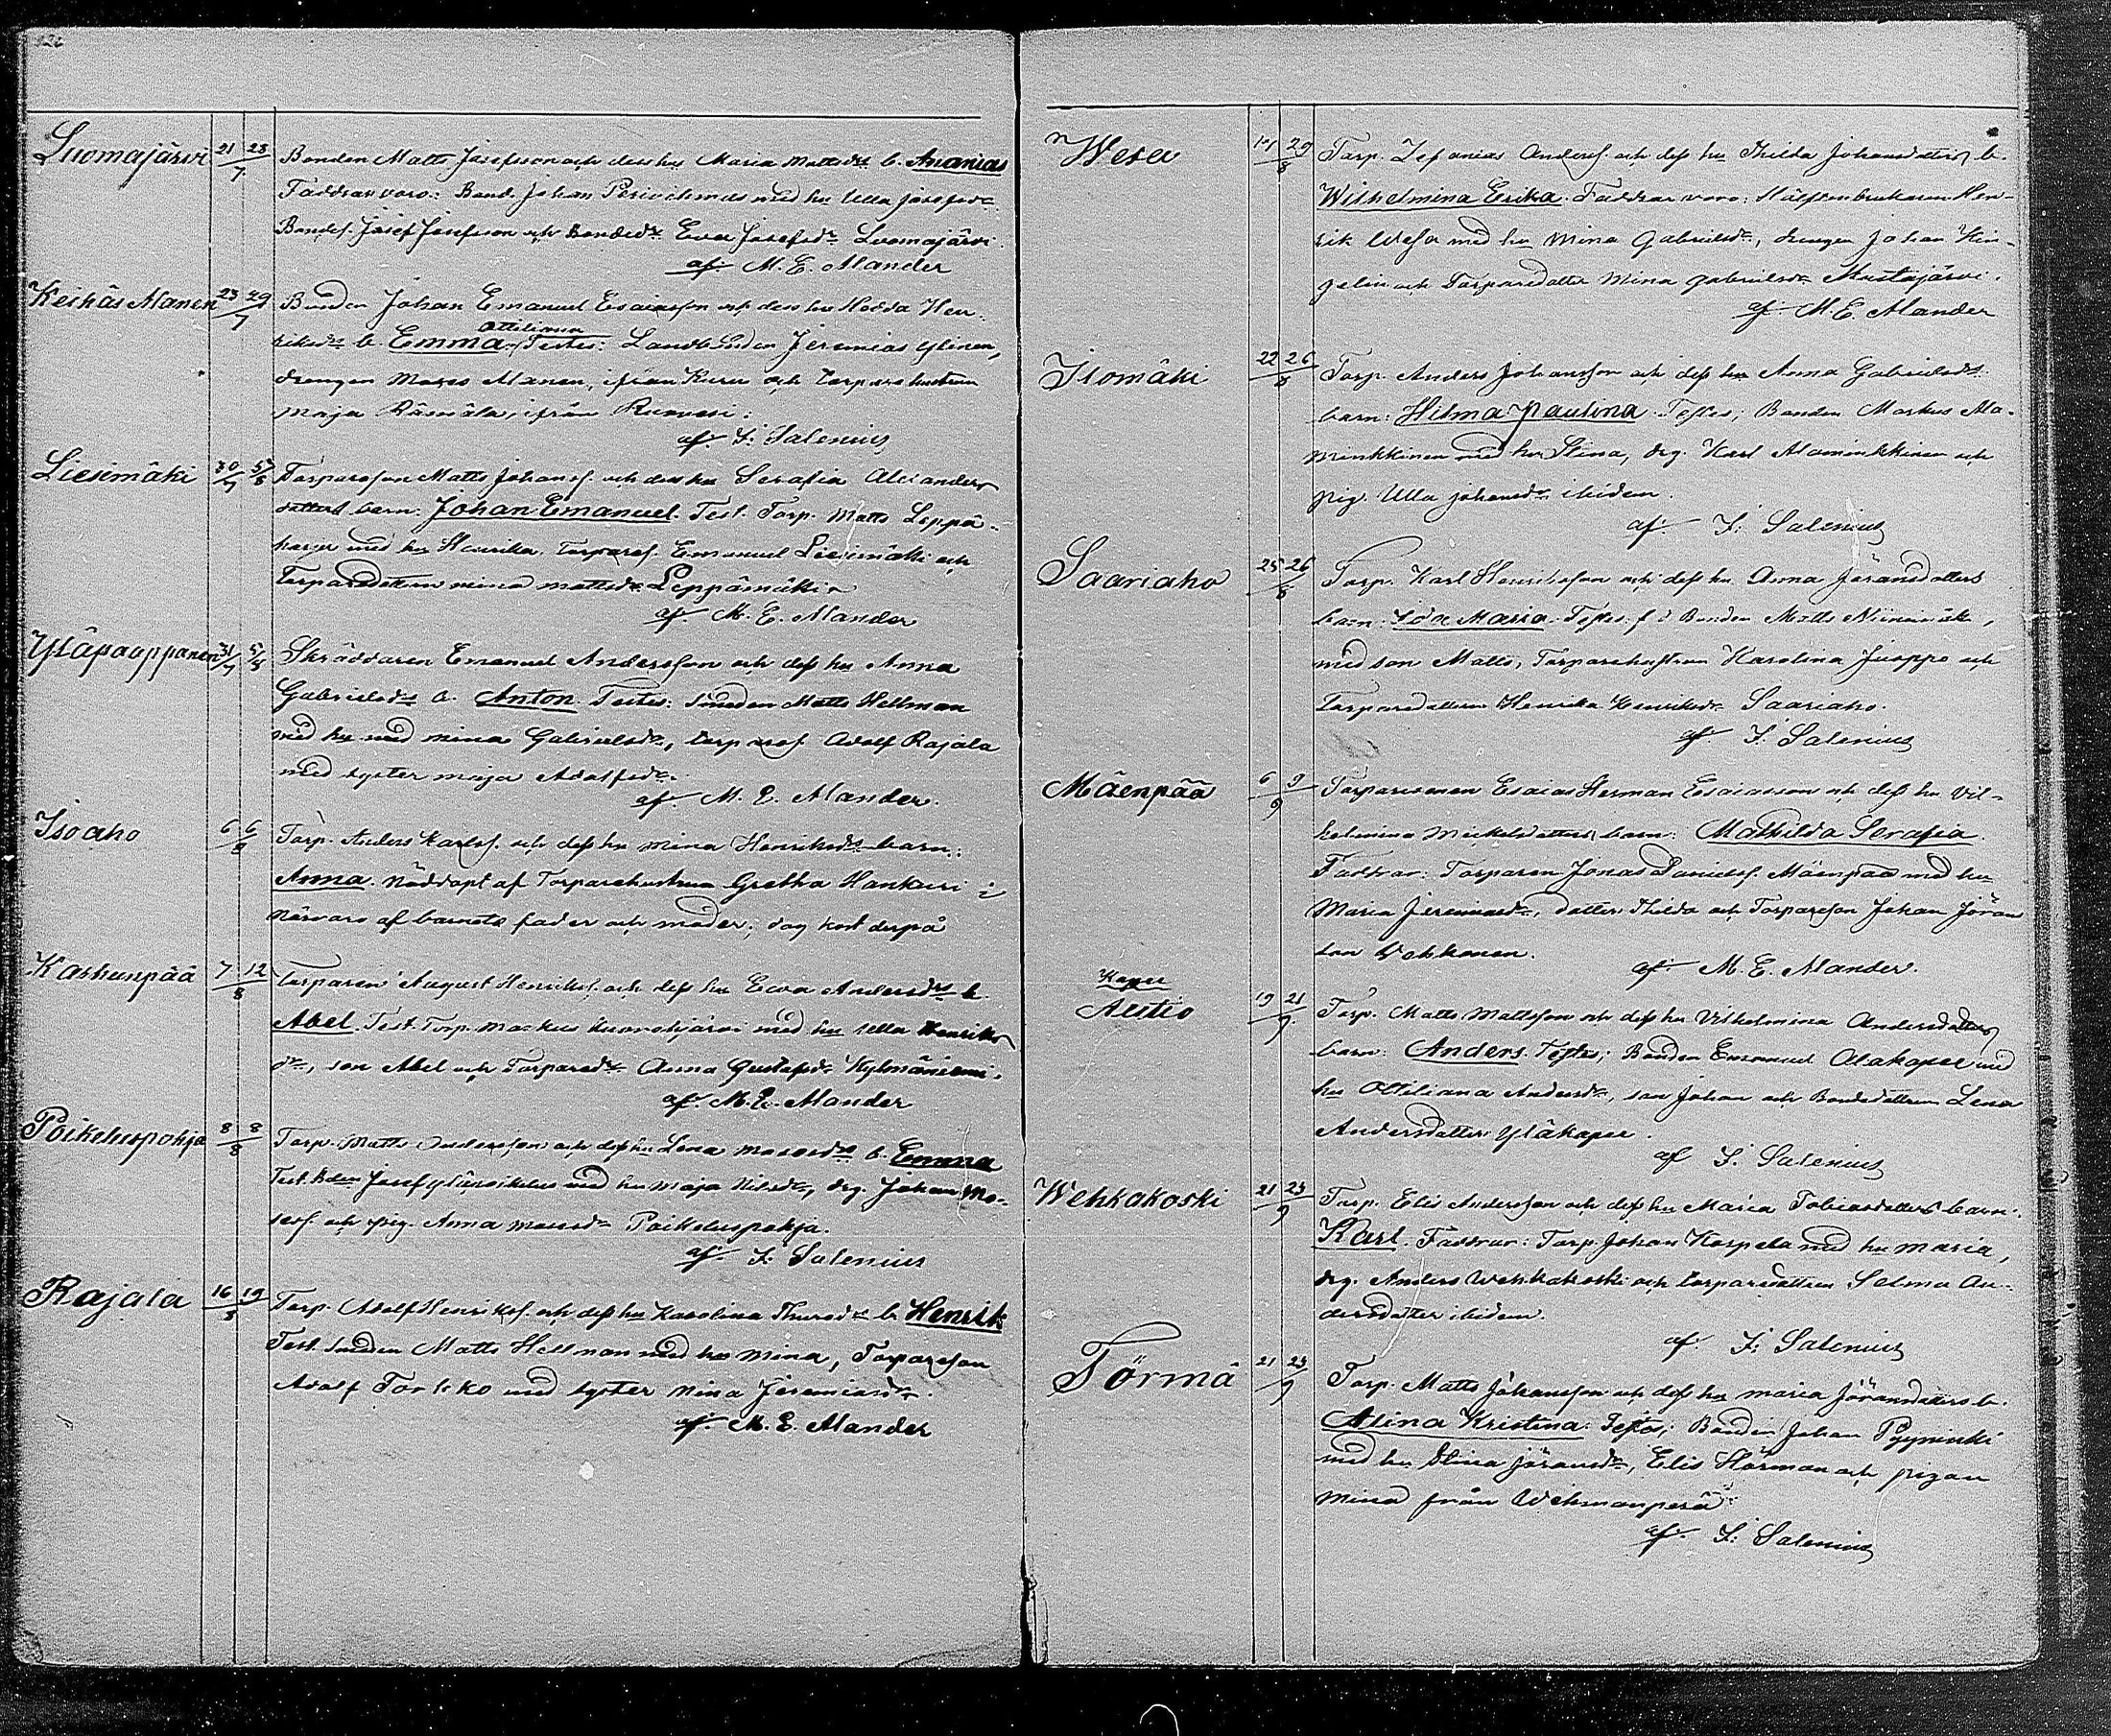 Luomajärvi 21 28/7 Bonden Matts Josefsson och dess hu Maria Mattsdrs b. Ananias
Faddrar voro: Bond. Johan med hu Ulla Josefsdr
Bondes. Josef Josefsson och Bonded. Eva Josefsdr Luomajärvi.
af M. E. Alander
Keihäs Alanen 23 29/7 Bonden Johan Emanuel Esaiasson och dess hu Hedda Hen-
Ottiliana
riksdrs b. Emma. Testes: Landbonden Jeremias Ylinen,
drengen Moses Alanen, ifrån Kuru och torpare hustrun
Maja Rämälä, ifrån Ruovesi.
af F. Salenius
Liesimäki 30/7 5/8 Torpareson Matts Johanss. och dess hu Serafia Alexanders
dotters barn: Johan Emanuel. Test. Torp. Matts Leppä-
harju med hu Henrika, Torpares. Emanuel Liesimäki och
Torparedottern Mina Mattsdr Leppämäki.
af M. E. Alander
Yläpaappanen 31/7 5/8 Skräddaren Emanuel Andersson och dess hu Anna
Gabrielsdrs b. Anton. Testes: Smeden Matts Hellman
med hu med Mina Gabrielsdr, torpares. Adolf Rajala
med syster Maja Adolfsdr.
af M. E. Alander.
Isoaho 6 6/8 Torp. Anders Karlss. och dess hu Mina Henriksdrs barn:
Anna. Nöddöpt af Torparehustrun Gretha Hankuri i
närvaro af barnets fader och moder; dog kort derpå
Karhunpää 7 12/8 Torparen August Henrikss. och dess hu Eva Andersdrs b.
Abel. Test. Torp. Markus Kuorehjärvi med hu Ulla Henriks
dr, son Abel och Torpared. Anna Gustafsdr Kylmäniemi.
af M. E. Alander
Poikeluspohja 8 8/8 Torp. Matts Andersson och dess hu Lena Mosesdrs b. Emma
Test. Bden Josef Yläpoikelus med hu Maja Nilsdr, drg. Johan Mo-
sess. och pig. Anna Mosesdr Poikeluspohja.
af F. Salenius
Rajala 16 19/8 Torp. Adolf Henrikss. och dess hu Karolina Thuresdrs b. Henrik
Test. Smeden Matts Hellman med hu Mina, Torpareson
Adolf Torkko med syster Mina Jeremiasdr.
af M. E. Alander
Wesa 29/8 Torp. Zefanias Anderss. och dess hu Thilda Johansdotters b.
Wilhelmina Erika. Faddrar voro: Hälftenbrukaren Hen-
rik Wesa med hu Mina Gabrielsdr, drengen Johan Hin-
gelin och Torparedotter Mina Gabrielsdr Mustajärvi.
af M. E. Alander
Isomäki 22 26/8 Torp. Anders Johansson och dess hu Anna Gabrielsdrs
barn: Hilma Paulina. Testes; Bonden Markus Ala-
minkkinen med hu Stina, drg. Karl Alaminkkinen och
pig. Ulla Johansdr ibidem.
af F. Salenius
Saariaho 25 26/8 Torp. Karl Henriksson och dess hu Anna Jöransdotters
barn: Ida Maria. Testes. f d Bonden Matts Niinimäki,
med son Matts, Torparehustrun Karolina Juoppo och
Torparedottern Henrika Henriksdr Saariaho.
af F. Salenius
Mäenpää 6 9/9 Torparesonen Esaias Herman Esaiasson och dess hu Vil-
helmina Mickelsdotters barn: Mathilda Serafia.
Faddrar: Torparen Jonas Danielss. Mäenpää med hu
Maria Jeremiasdr, dotter Thilda och Torpareson Johan Jöran
son Wekkonen.
af M. E. Alander.
Kapee
Aestio 19 21/9 Torp. Matts Mattsson och dess hu Vilhelmina Andersdotters
barn: Anders. Testes; Bonden Emanuel Alakapee med
hu Ottiliana Andersdr, son Johan och Bondedottern Lena
Andersdotter Yläkapee.
af F. Salenius
Wehkakoski 21 23/9 Torp. Elis Andersson och dess hu Maria Tobiasdotters barn:
Karl. Faddrar: Torp. Johan Korpela med hu Maria,
drg. Anders Wehkakoski och torparedottern Selma An-
dersdotter ibidem.
af F. Salenius
Törmä 21 23/9 Torp. Matts Johansson och dess hu Maria Jöransdotters b.
Alina Kristina. Testes; Bonden Johan Pyyninki
med hu Stina Jöransdr, Elis Hörman och pigan
Mina från Wehmanperä.
af F. Salenius